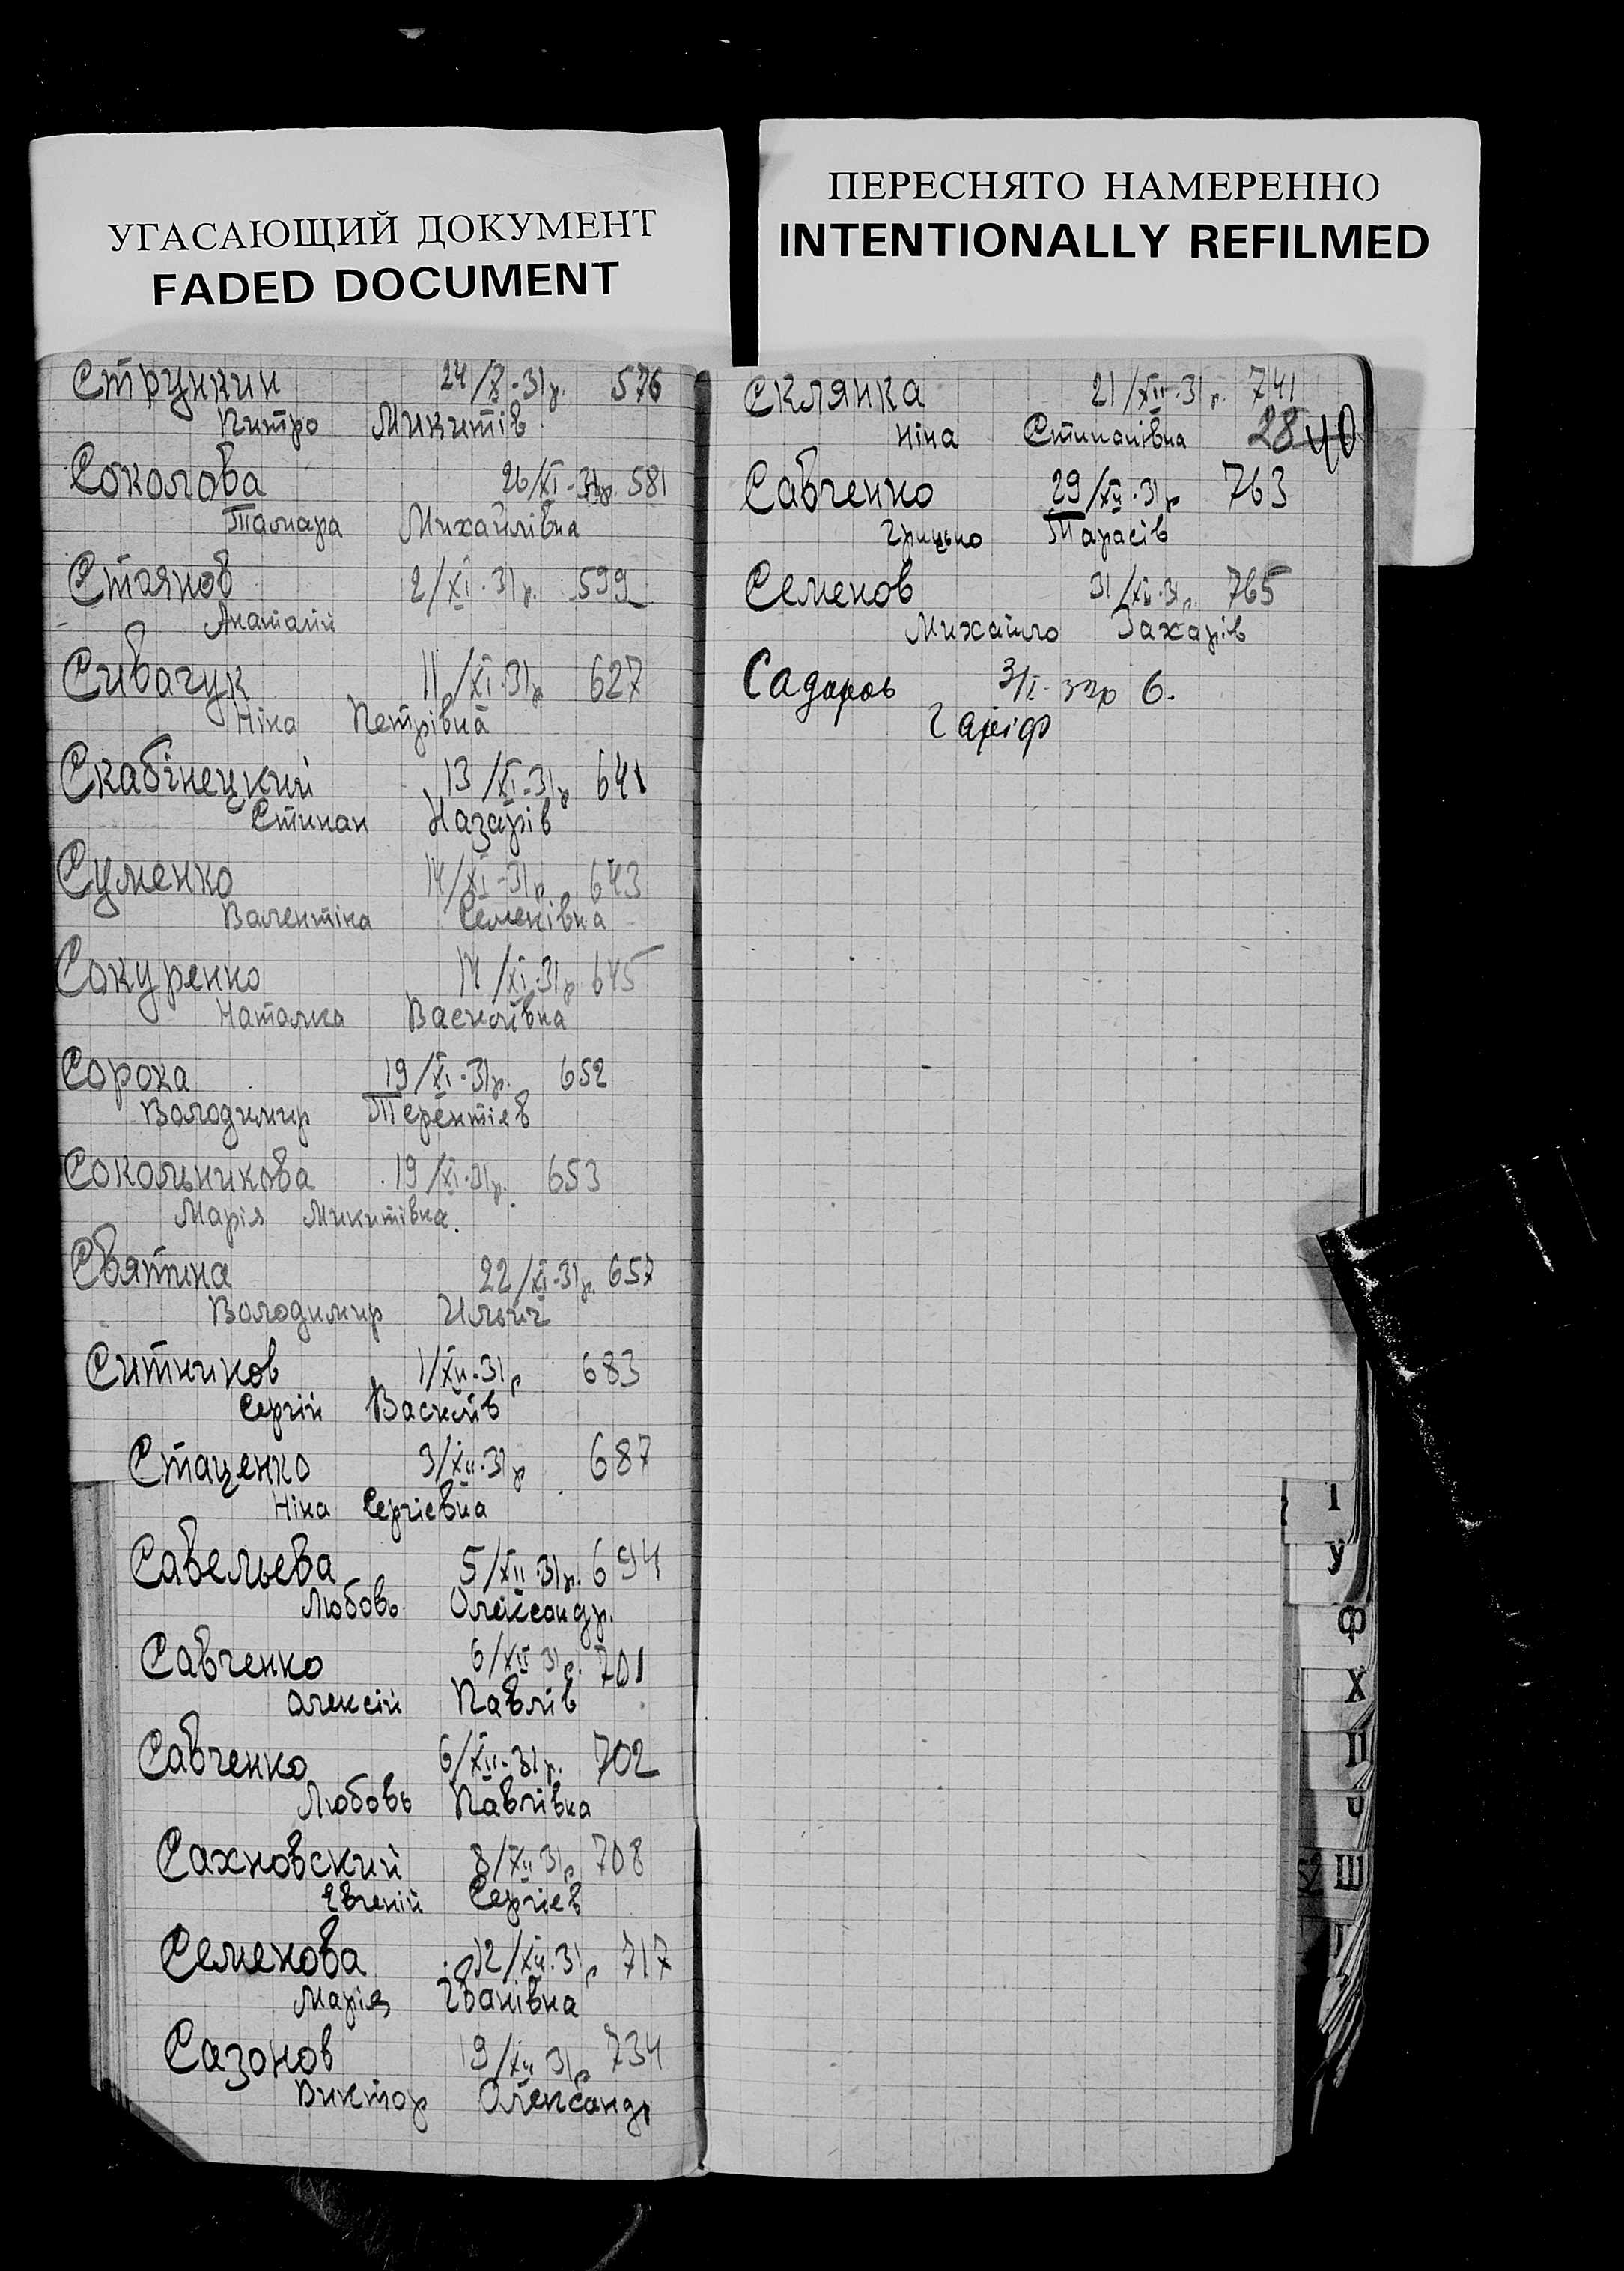 УГАСАЮЩИЙ ДОКУМЕНТ
FADED DOCUMENT
Стрункин 24/X-31р. 576
Питро Микитів
Соколова 26/XI-31р. 581
Тамара Михайлівна
Стаянов 2/XI-31р. 599
Анаталій
Сивачук 11/XI-31р 627
Ніна Петрівна
Скабінецкий 13/XI-31р 641
Стипан Назарів
Суменко 14/XI-31р 643
Валентіна Семенівна
Сокуренко 14/XI-31р 645
Наталка Василівна
Сорока 19/XI-31р. 652
Володимир Терентіев
Сокольникова 19/XI-31р. 653
Марія Микитівна.
Святина 22/XI-31р. 657
Володимир Ильїч
Ситников 1/XII-31р 683
Сергій Василів
Стаценко 3/XII-31р 687
Ніна Сергіевна
Савельева 5/XII-31р. 694
Любовь Олександр.
Савченко 6/XII 31р. 701
Олексій Павлів
Савченко 6/XII-31р. 702
Любовь Павлівна
Сахновский 8/XII 31р 708
Євгеній Сергіев
Семенова 12/XII-31р 717
Марія Іванівна
Сазонов 19/XII 31р 734
Виктор Олександр
ПЕРЕСНЯТО НАМЕРЕННО
INTENTIONALLY REFILMED
Склянка 21/XII-31р. 741
Ніна Стипанівна 28 40
Савченко 29/XII-31р 763
Грицько Тарасів
Семенов 31/XII-31р. 765
Михайло Захарів
Садаров 3/I-32р 6.
Гаріф
І
У
Ф
Х
Ц
Ч
Ш